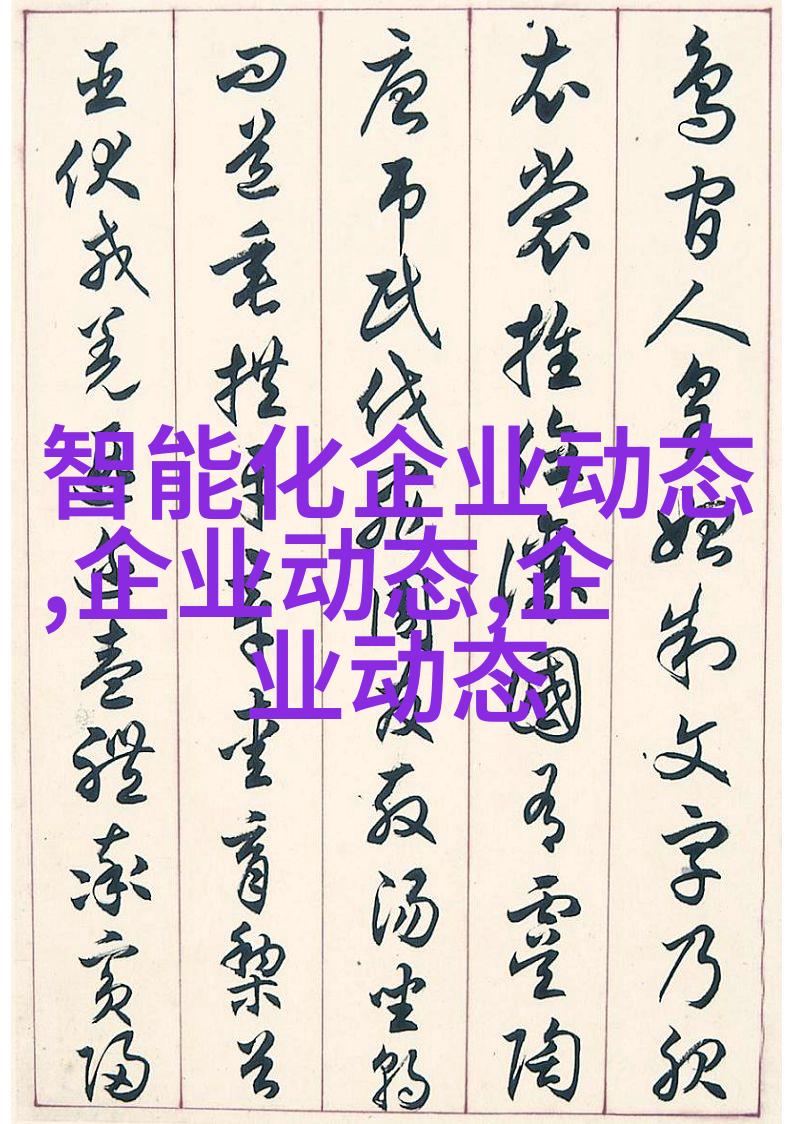 智能化企业动态
,企业动态,企
业动态
鳥官人皇始制文字乃服
衣裳推位讓國有虞陶
唐吊民伐罪周發殷湯坐朝
問道垂拱平章愛育黎首
臣伏戎羌遐邇壹體率賓歸